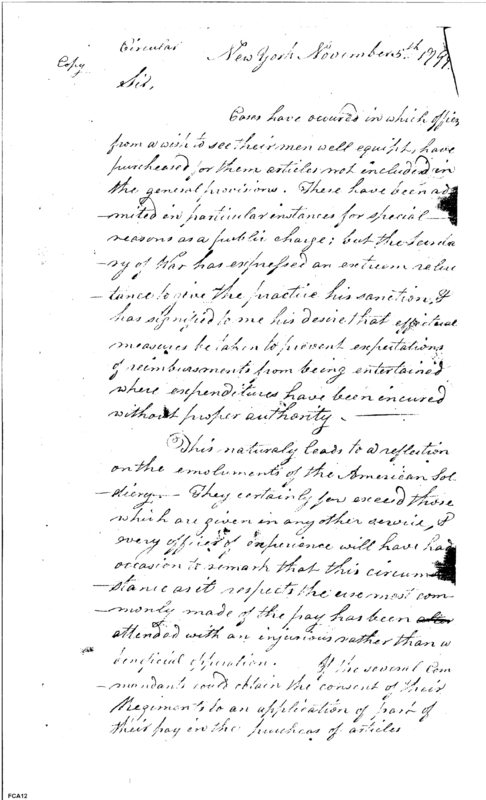 Circular
New York November 5th 1799.
Copy
Sir,
Cases have occured in which offic
from a wish to see their men well equipt, have
purcheased for them articles not included in
the general provisions. These have been ad
mited in particular instances for special
reasons as a public charge; but the Secreta
ry of War has expressed an extreem reluc
tance to give the practice his sanction, &
has signified to me his desire that effectual
measures be taken to prevent expectations
of reimbursments from being entertained
where expenditures have been incured
without proper authority.
This naturaly leads to a reflection
on the emoluments of the American Sol
diery. They certainly far exceed those
which are given in any other service, &
every officer of experience will have had
occasion to remark that this circum
stance as it respects the use most com
monly made of the pay has been
attended with an injurious rather than a
beneficial opperation. If the several Com
mandants could obtain the consent of their
Regiments to an application of part of
their pay in the purcheas of articles
FCA12